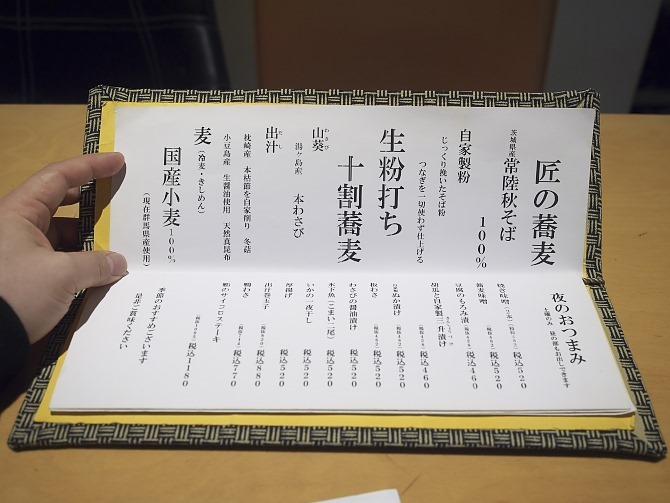 匠の蕎麦
茨城県産 常陸秋そば 100%
自家製粉
じっくり挽いたそば粉
つなぎを一切使わず仕上げる
生粉打ち
十割蕎麦
山葵
わさび
湯ヶ島産 本わさび
出汁
だし
枕崎産 本枯節を自家削り 冬菇
小豆島産 生醤油使用 天然真昆布
麦(冷麦・きしめん)
国産小麦100%
(現在群馬県産使用)
夜のおつまみ
焼き味噌 税込520
蕎麦味噌 税込520
豆腐のもろみ漬 税込460
胡瓜と自家製三升漬け 税込460
ぬか漬け 税込520
板わさ 税込520
わさびの醤油漬け 税込520
木ト魚(こまい二尾) 税込520
いかの一夜干し 税込520
厚揚げ 税込520
出汁巻玉子 税込880
鴨わさ 税込770
鴨のサイコロステーキ 税込1180
季節のおすすめございます
是非ご賞味ください